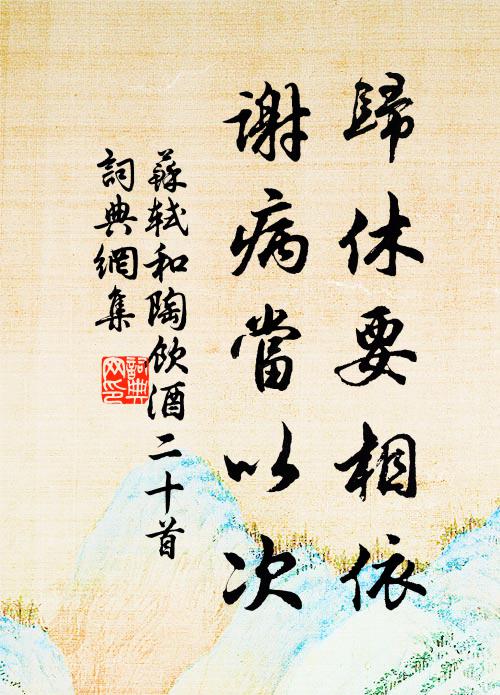 歸休要相依
謝病當以次
蘇軾和陶飲酒二十首
詞典網集
詞典網印